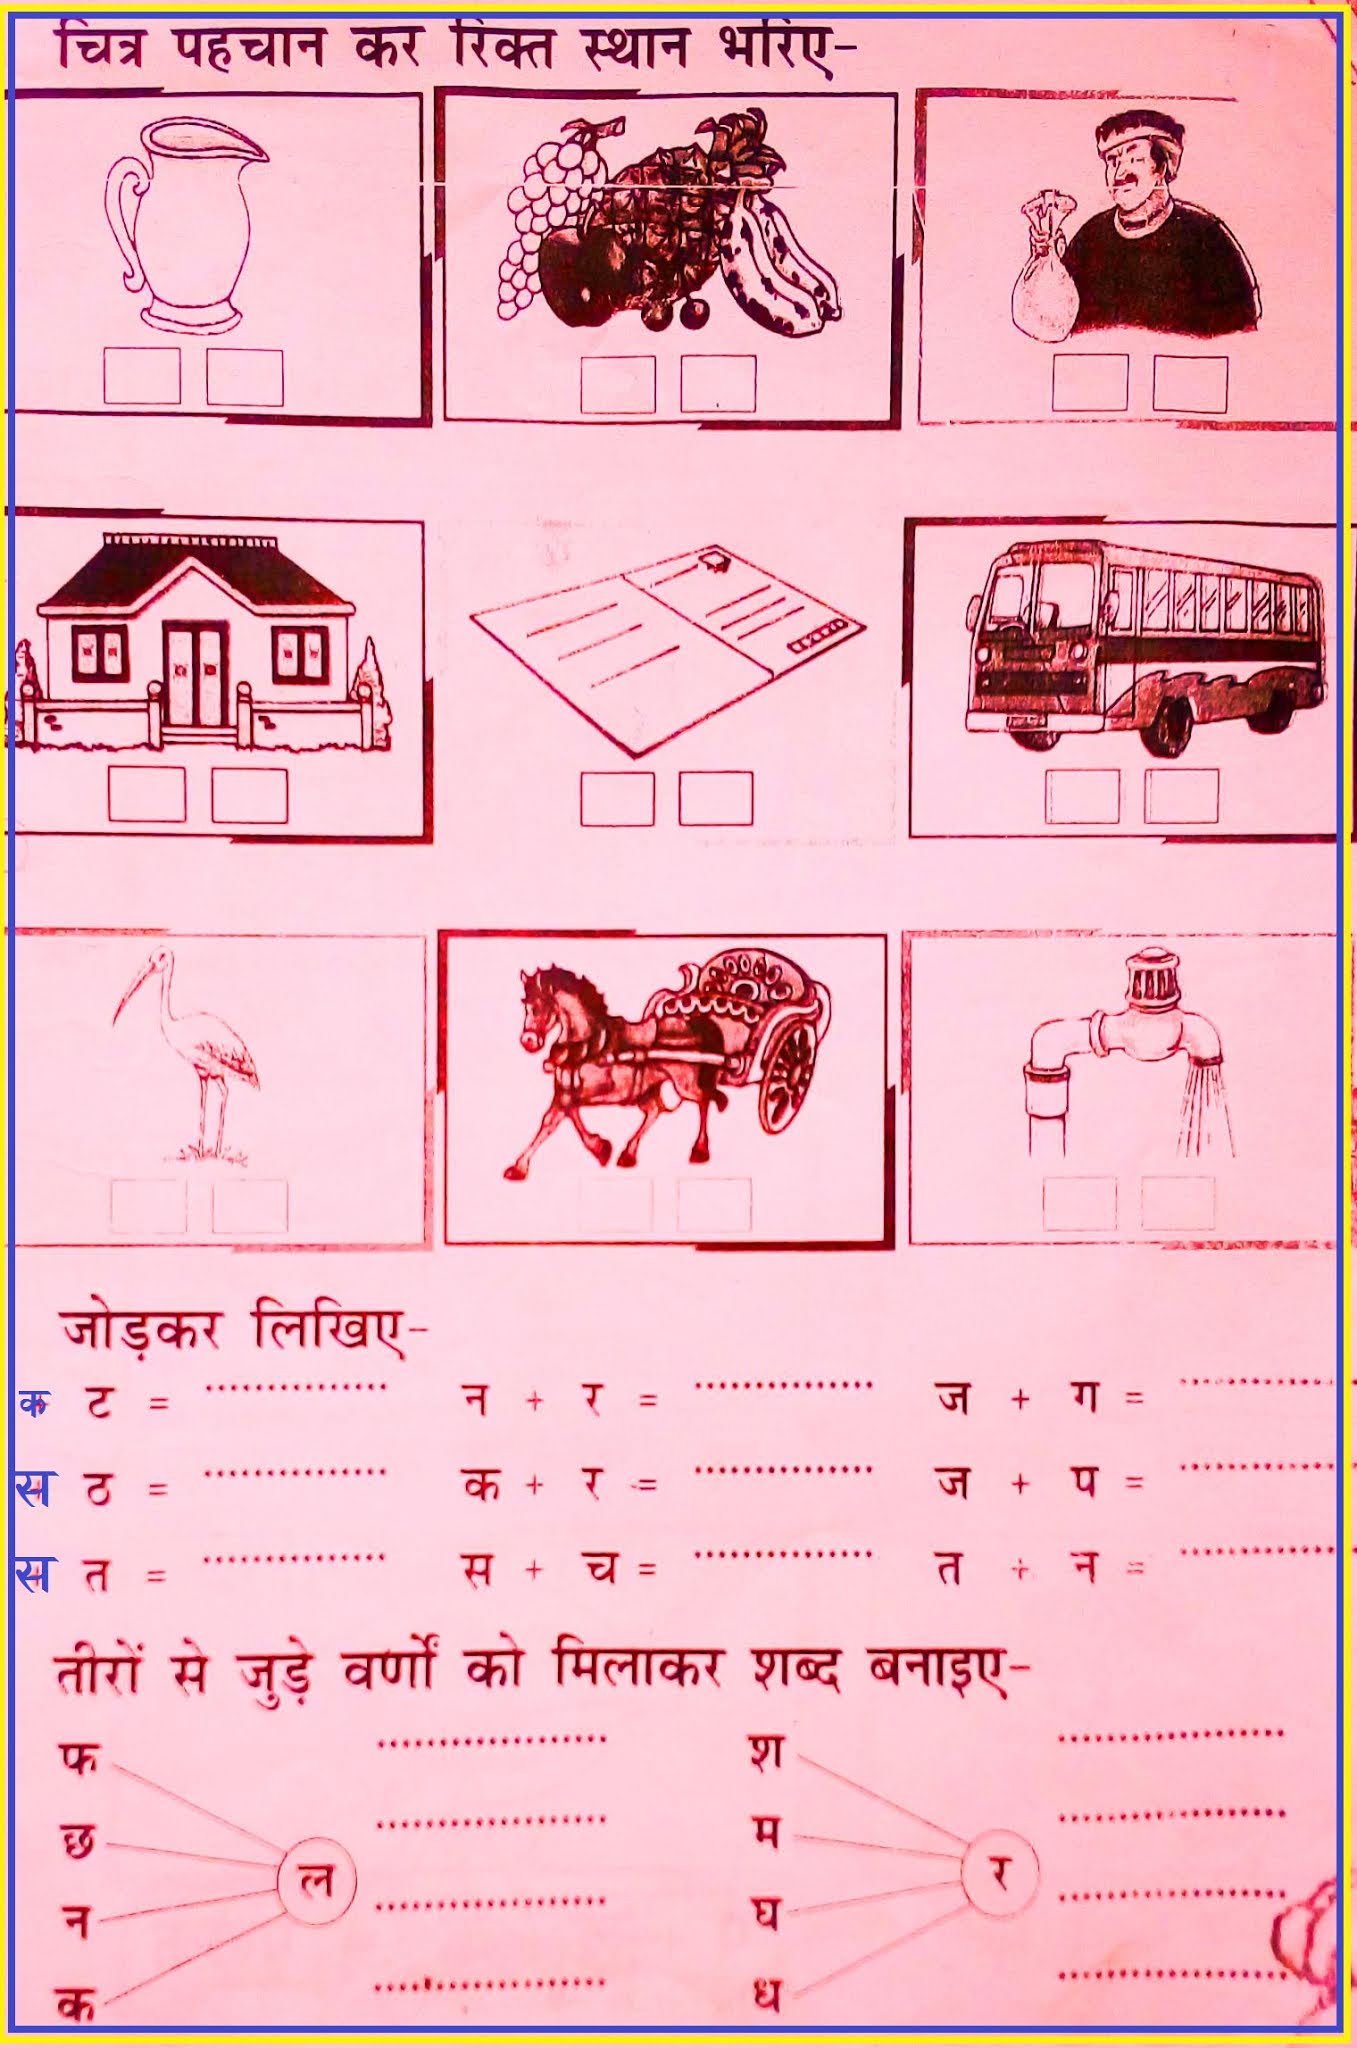 चित्र पहचान कर रिक्त स्थान भरिए-
जोड़कर लिखिए-
क ट = .................. न + र = .................. ज + ग = ..................
स ठ = .................. क + र = .................. ज + प = ..................
स त = .................. स + च = .................. त + न = ..................
तीरों से जुड़े वर्णों को मिलाकर शब्द बनाइए-
फ .................. श ..................
छ .................. म ..................
ल र
न .................. घ ..................
क .................. ध ..................